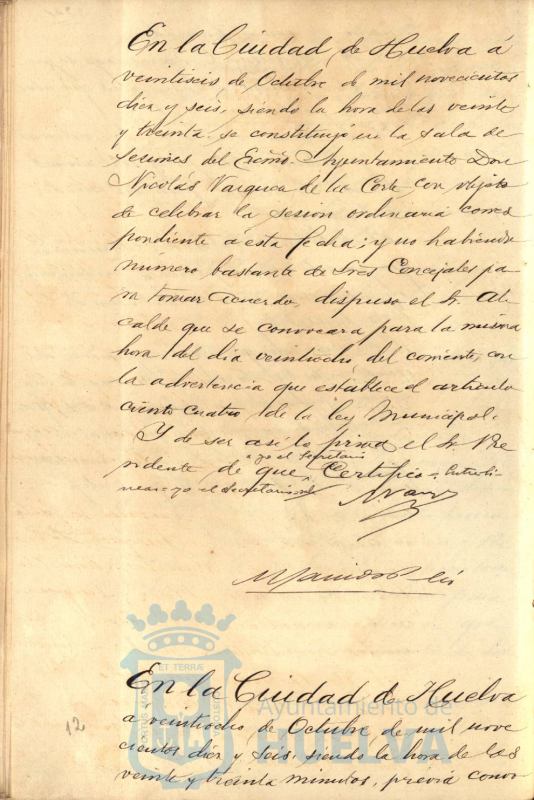 En la Ciudad de Huelva á
veintiseis de Octubre de mil novecientos
diez y seis, siendo la hora de las veinte
y treinta se constituyó en la sala de
sesiones del Excmo. Ayuntamiento Don
Nicolás Vazquez de la Corte, con objeto
de celebrar la sesion ordinaria corres
pondiente á esta fecha; y no habiendo
número bastante de Sres Concejales pa-
ra tomar acuerdo, dispuso el Sr. Al-
calde que se convocara para la misma
hora del dia veintiocho del corriente, con
la advertencia que establece el artículo
ciento cuatro de la ley Municipal.
Y de ser así lo firma el Sr. Pre
yo el Secretario
sidente de que Certifico = Entreli-
neas = yo el Secretario = vale
ET TERRÆ
En la Ciudad de Huelva
Ayuntamiento de
HUELVA
a veintiocho de Octubre de mil nove
cientos diez y seis siendo la hora de las
veinte y treinta minutos, previa convo
12